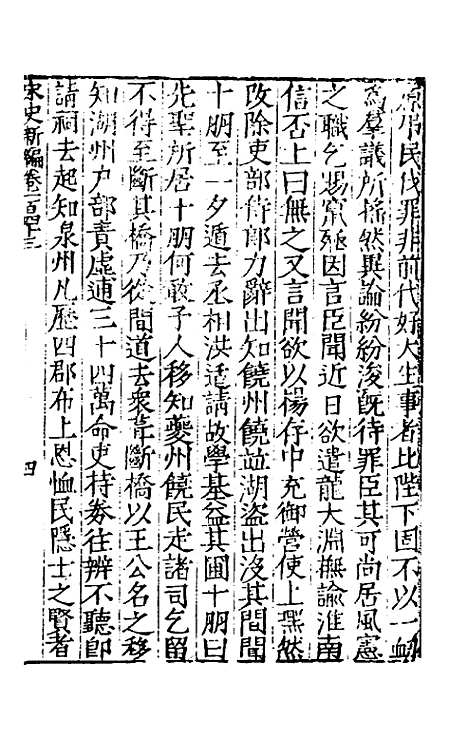 原弔民伐罪非前代好大生事者比陛下固不以一衂
爲羣議所搖然異論紛紛浚旣待罪臣其可尚居風憲
之職乞賜竄殛因言臣聞近日欲遣龍大淵撫諭淮南
信否上曰無之又言聞欲以楊存中充御營使上嘿然
改除吏部侍郎力辭出知饒州饒並湖盜出沒其間聞
十朋至一夕遁去丞相洪适請故學基益其圃十朋曰
先聖所居十朋何敢予人移知夔州饒民走諸司乞留
不得至斷其橋乃從間道去衆葺斷橋以王公名之移
知湖州戶部責虛逋三十四萬命吏持券往辨不聽卽
請祠去起知泉州凡歷四郡布上恩恤民隱士之賢者
宋史新編卷一百四十三
四